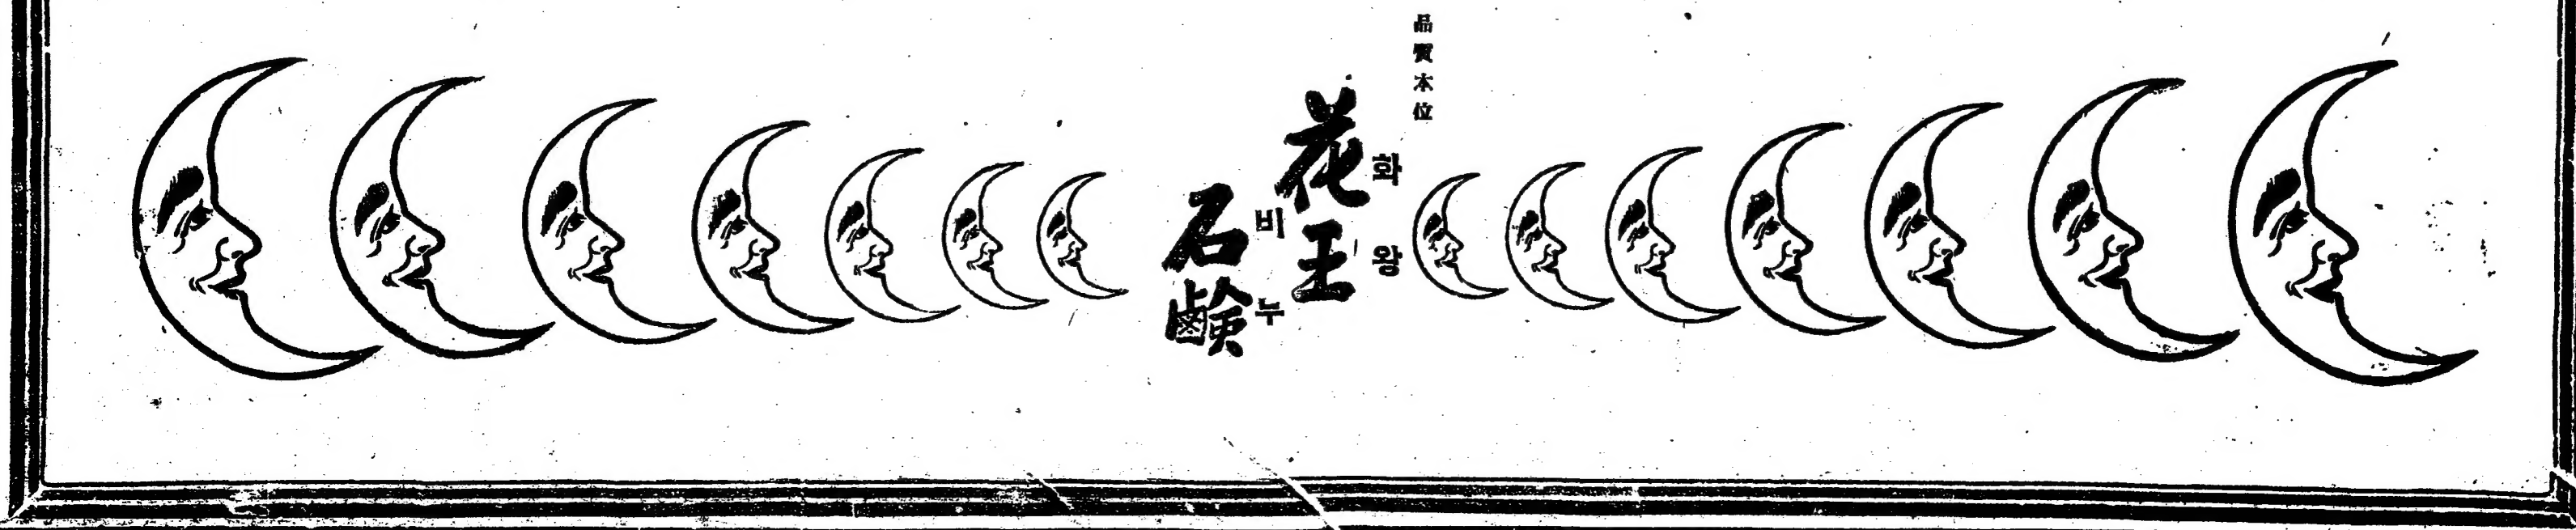 品質本位
花王
화왕
石鹸
비누